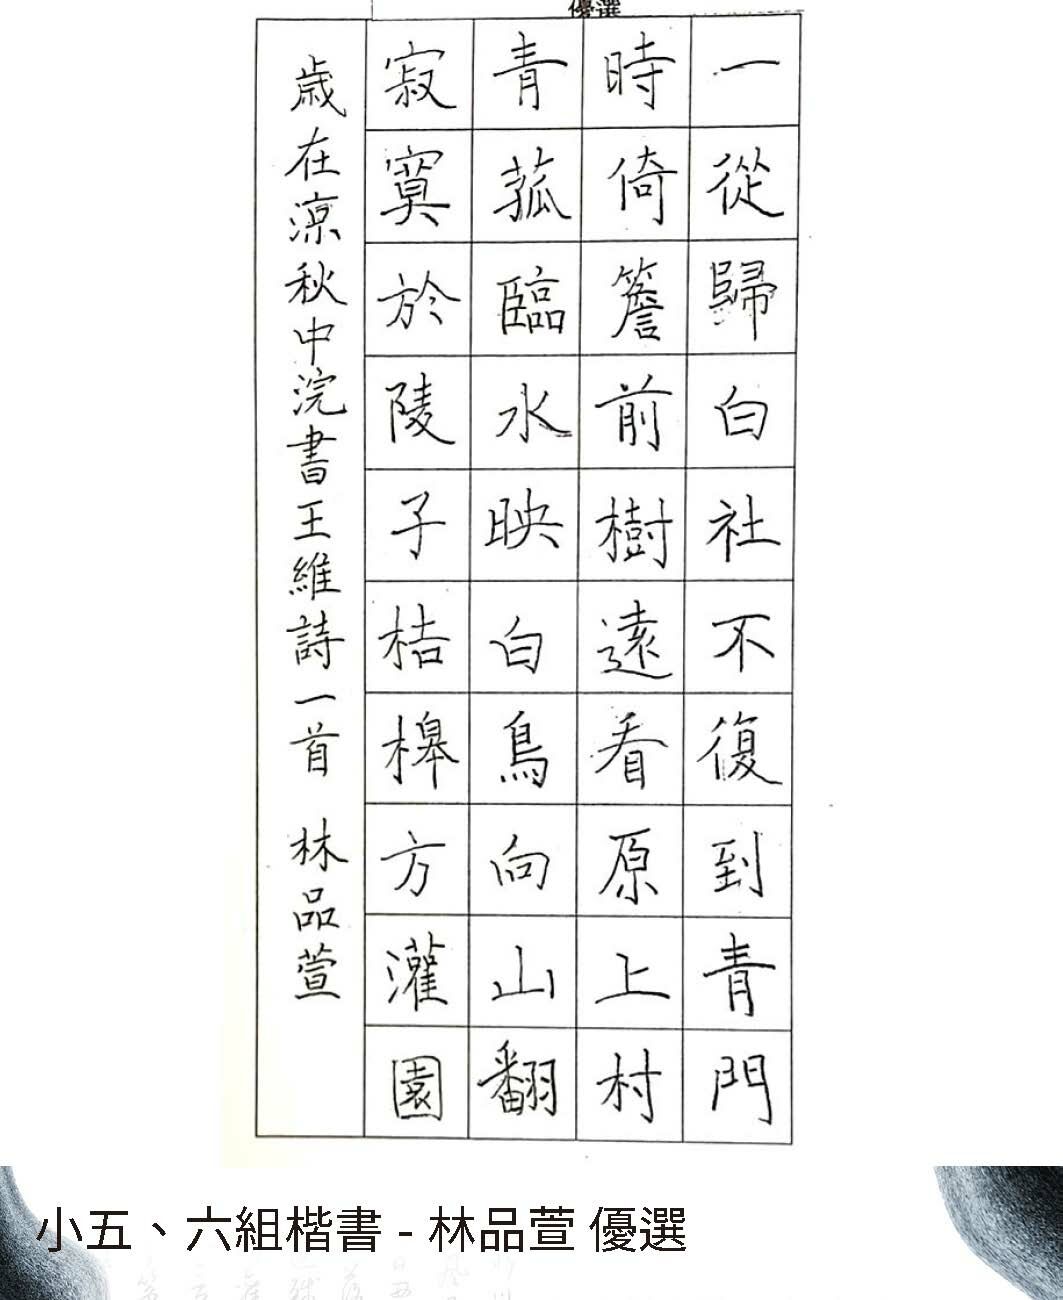 優選
一從歸白社不復到青門
時倚簷前樹遠看原上村
青菰臨水映白鳥向山翻
寂寞於陵子桔槔方灌園
歲在涼秋中浣書王維詩一首 林品萱
小五、六組楷書 - 林品萱 優選